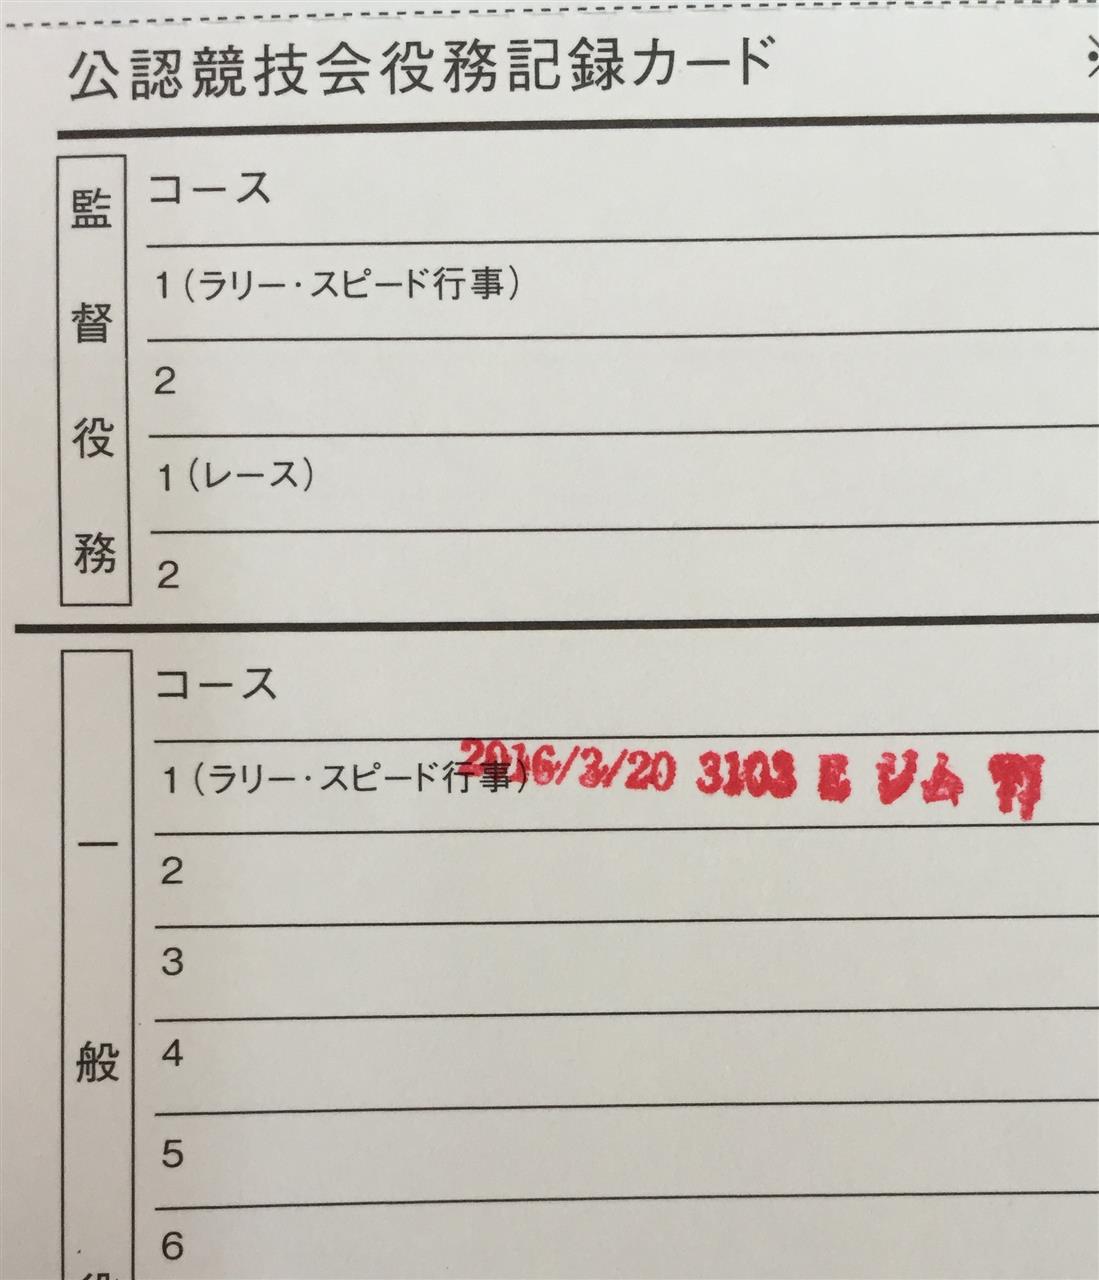 公認競技会役務記録カード
監督役務
コース
1（ラリー・スピード行事）
2
1（レース）
2
一般
コース
1（ラリー・スピード行事） 2016/3/20 3103 ジム
2
3
4
5
6